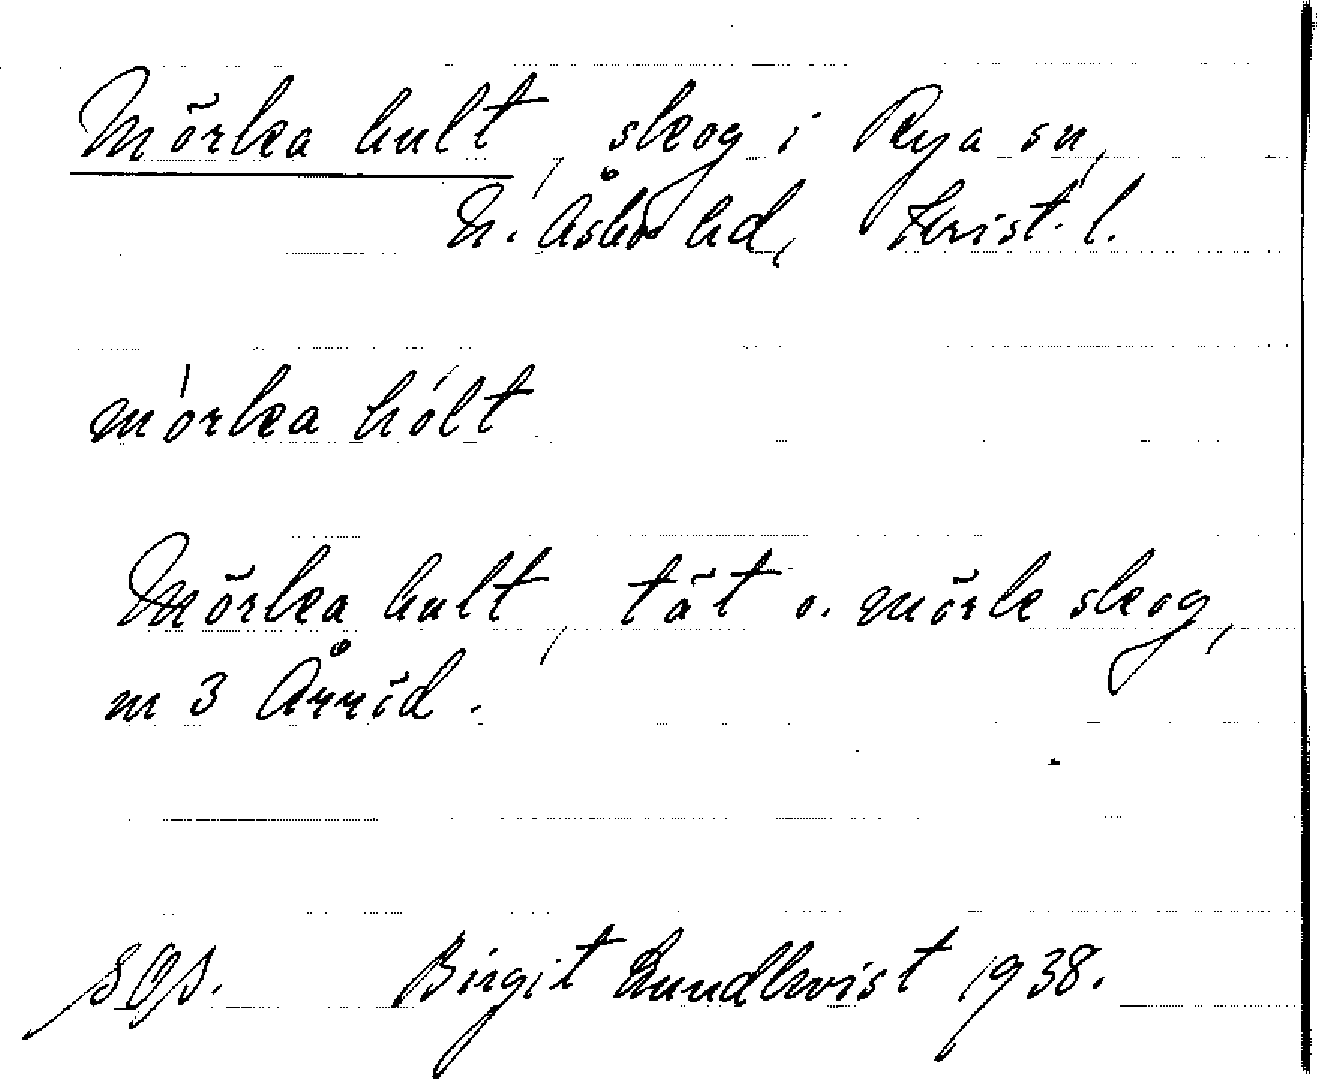 Mörka hult, skog i Rya sn,
N. Åsbo hd, Krist. l.
mórka hólt
Mörka hult, tät o. mörk skog,
m 3 Årröd.
Birgit Lundkvist 1938.